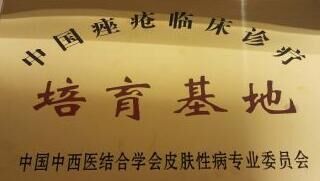 中国痤疮临床诊疗
培育基地
中国中西医结合学会皮肤性病专业委员会